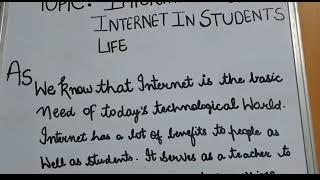 TOPIC:
INTERNET IN STUDENTS
LIFE
As We know that Internet is the basic
Need of today's technological World.
Internet has a lot of benefits to people as
Well as students. It serves as a teacher to